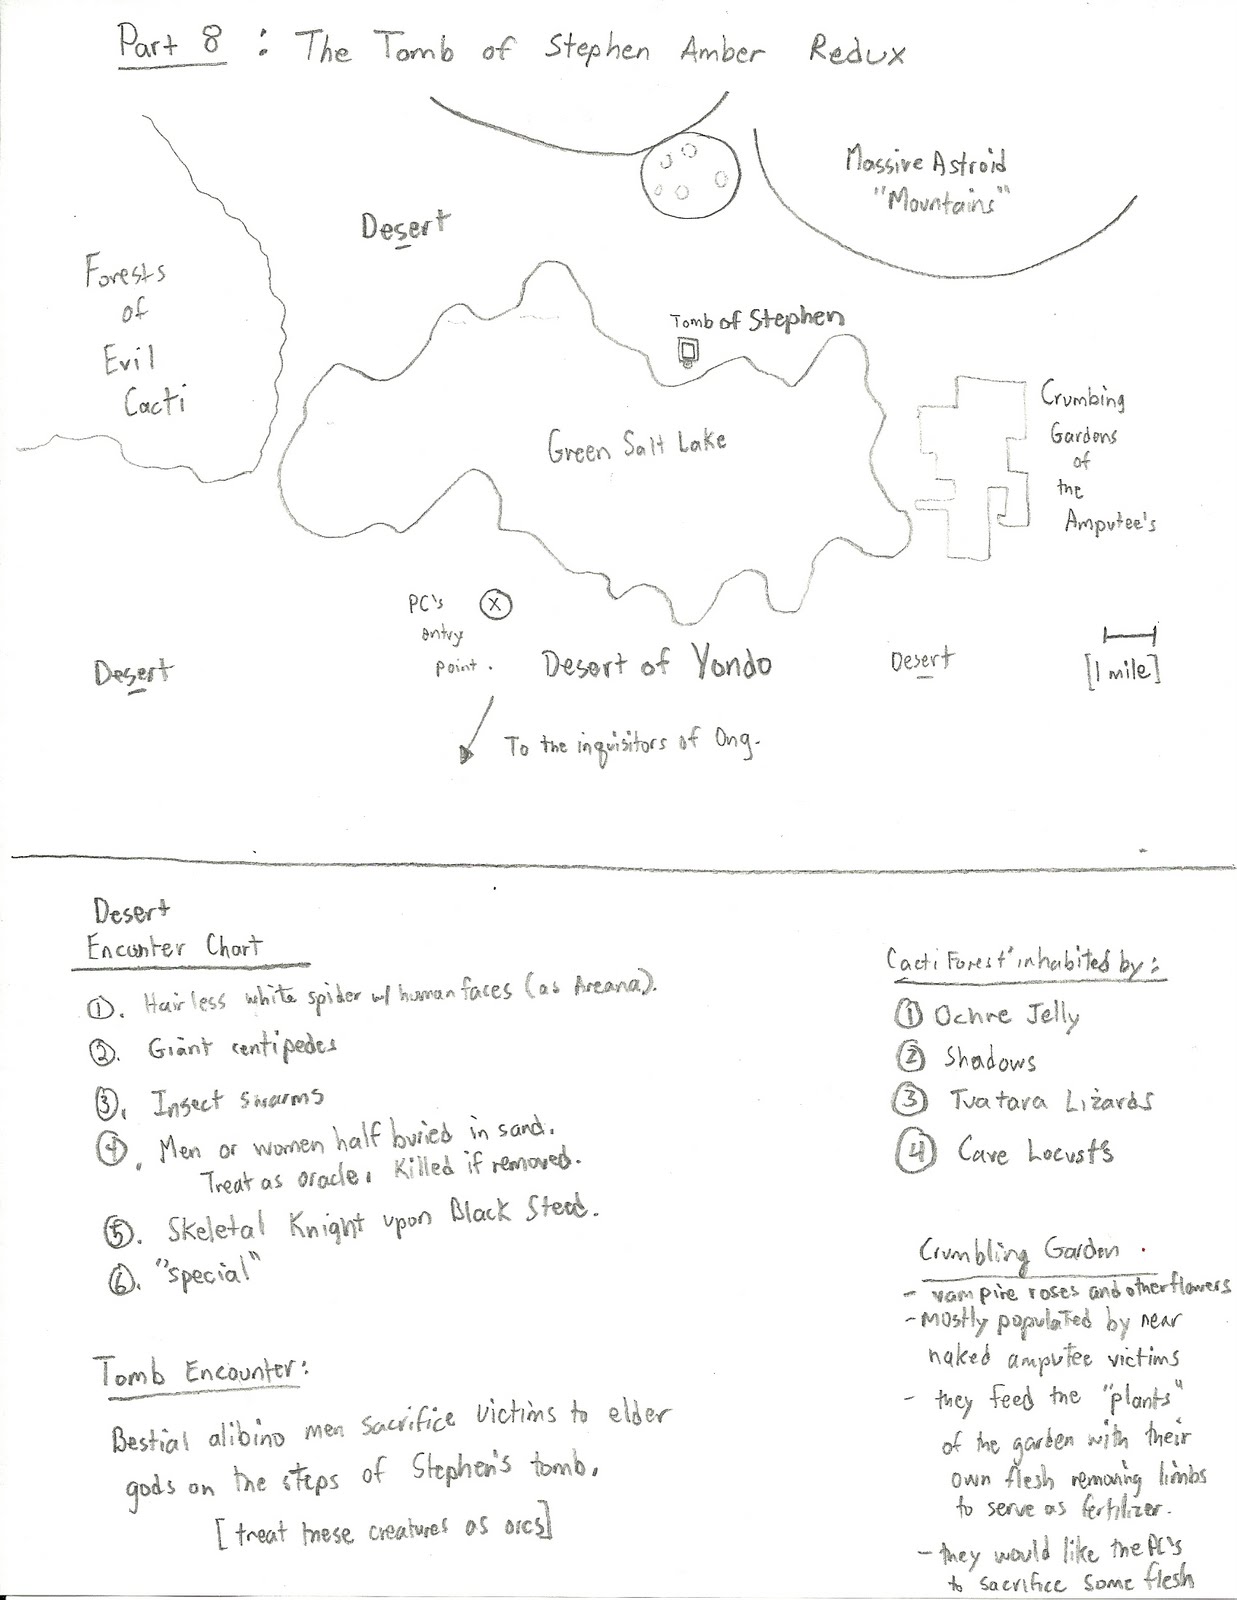 Part 8 : The Tomb of Stephen Amber Redux
Massive Astroid
"Mountains"
Desert
Forests
of
Evil
Cacti
Tomb of Stephen
Green Salt Lake
Crumbing
Gardens
of
the
Amputee's
PC's
entry
point.
X
Desert
Desert of Yondo
Desert
[1 mile]
To the inquisitors of Ong.
Desert
Encounter Chart
1. Hairless white spider w/ human faces (as Areana).
2. Giant centipedes
3. Insect swarms
4. Men or women half buried in sand.
Treat as oracle. Killed if removed.
5. Skeletal Knight upon Black Steed.
6. "special"
Tomb Encounter:
Bestial alibino men sacrifice victims to elder
gods on the steps of Stephen's tomb.
[treat these creatures as orcs]
Cacti Forest inhabited by:
1 Ochre Jelly
2 Shadows
3 Tuatara Lizards
4 Cave Locusts
Crumbling Garden
- vampire roses and other flowers
- mostly populated by near
naked amputee victims
- they feed the "plants"
of the garden with their
own flesh removing limbs
to serve as fertilizer.
- they would like the PC's
to sacrifice some flesh